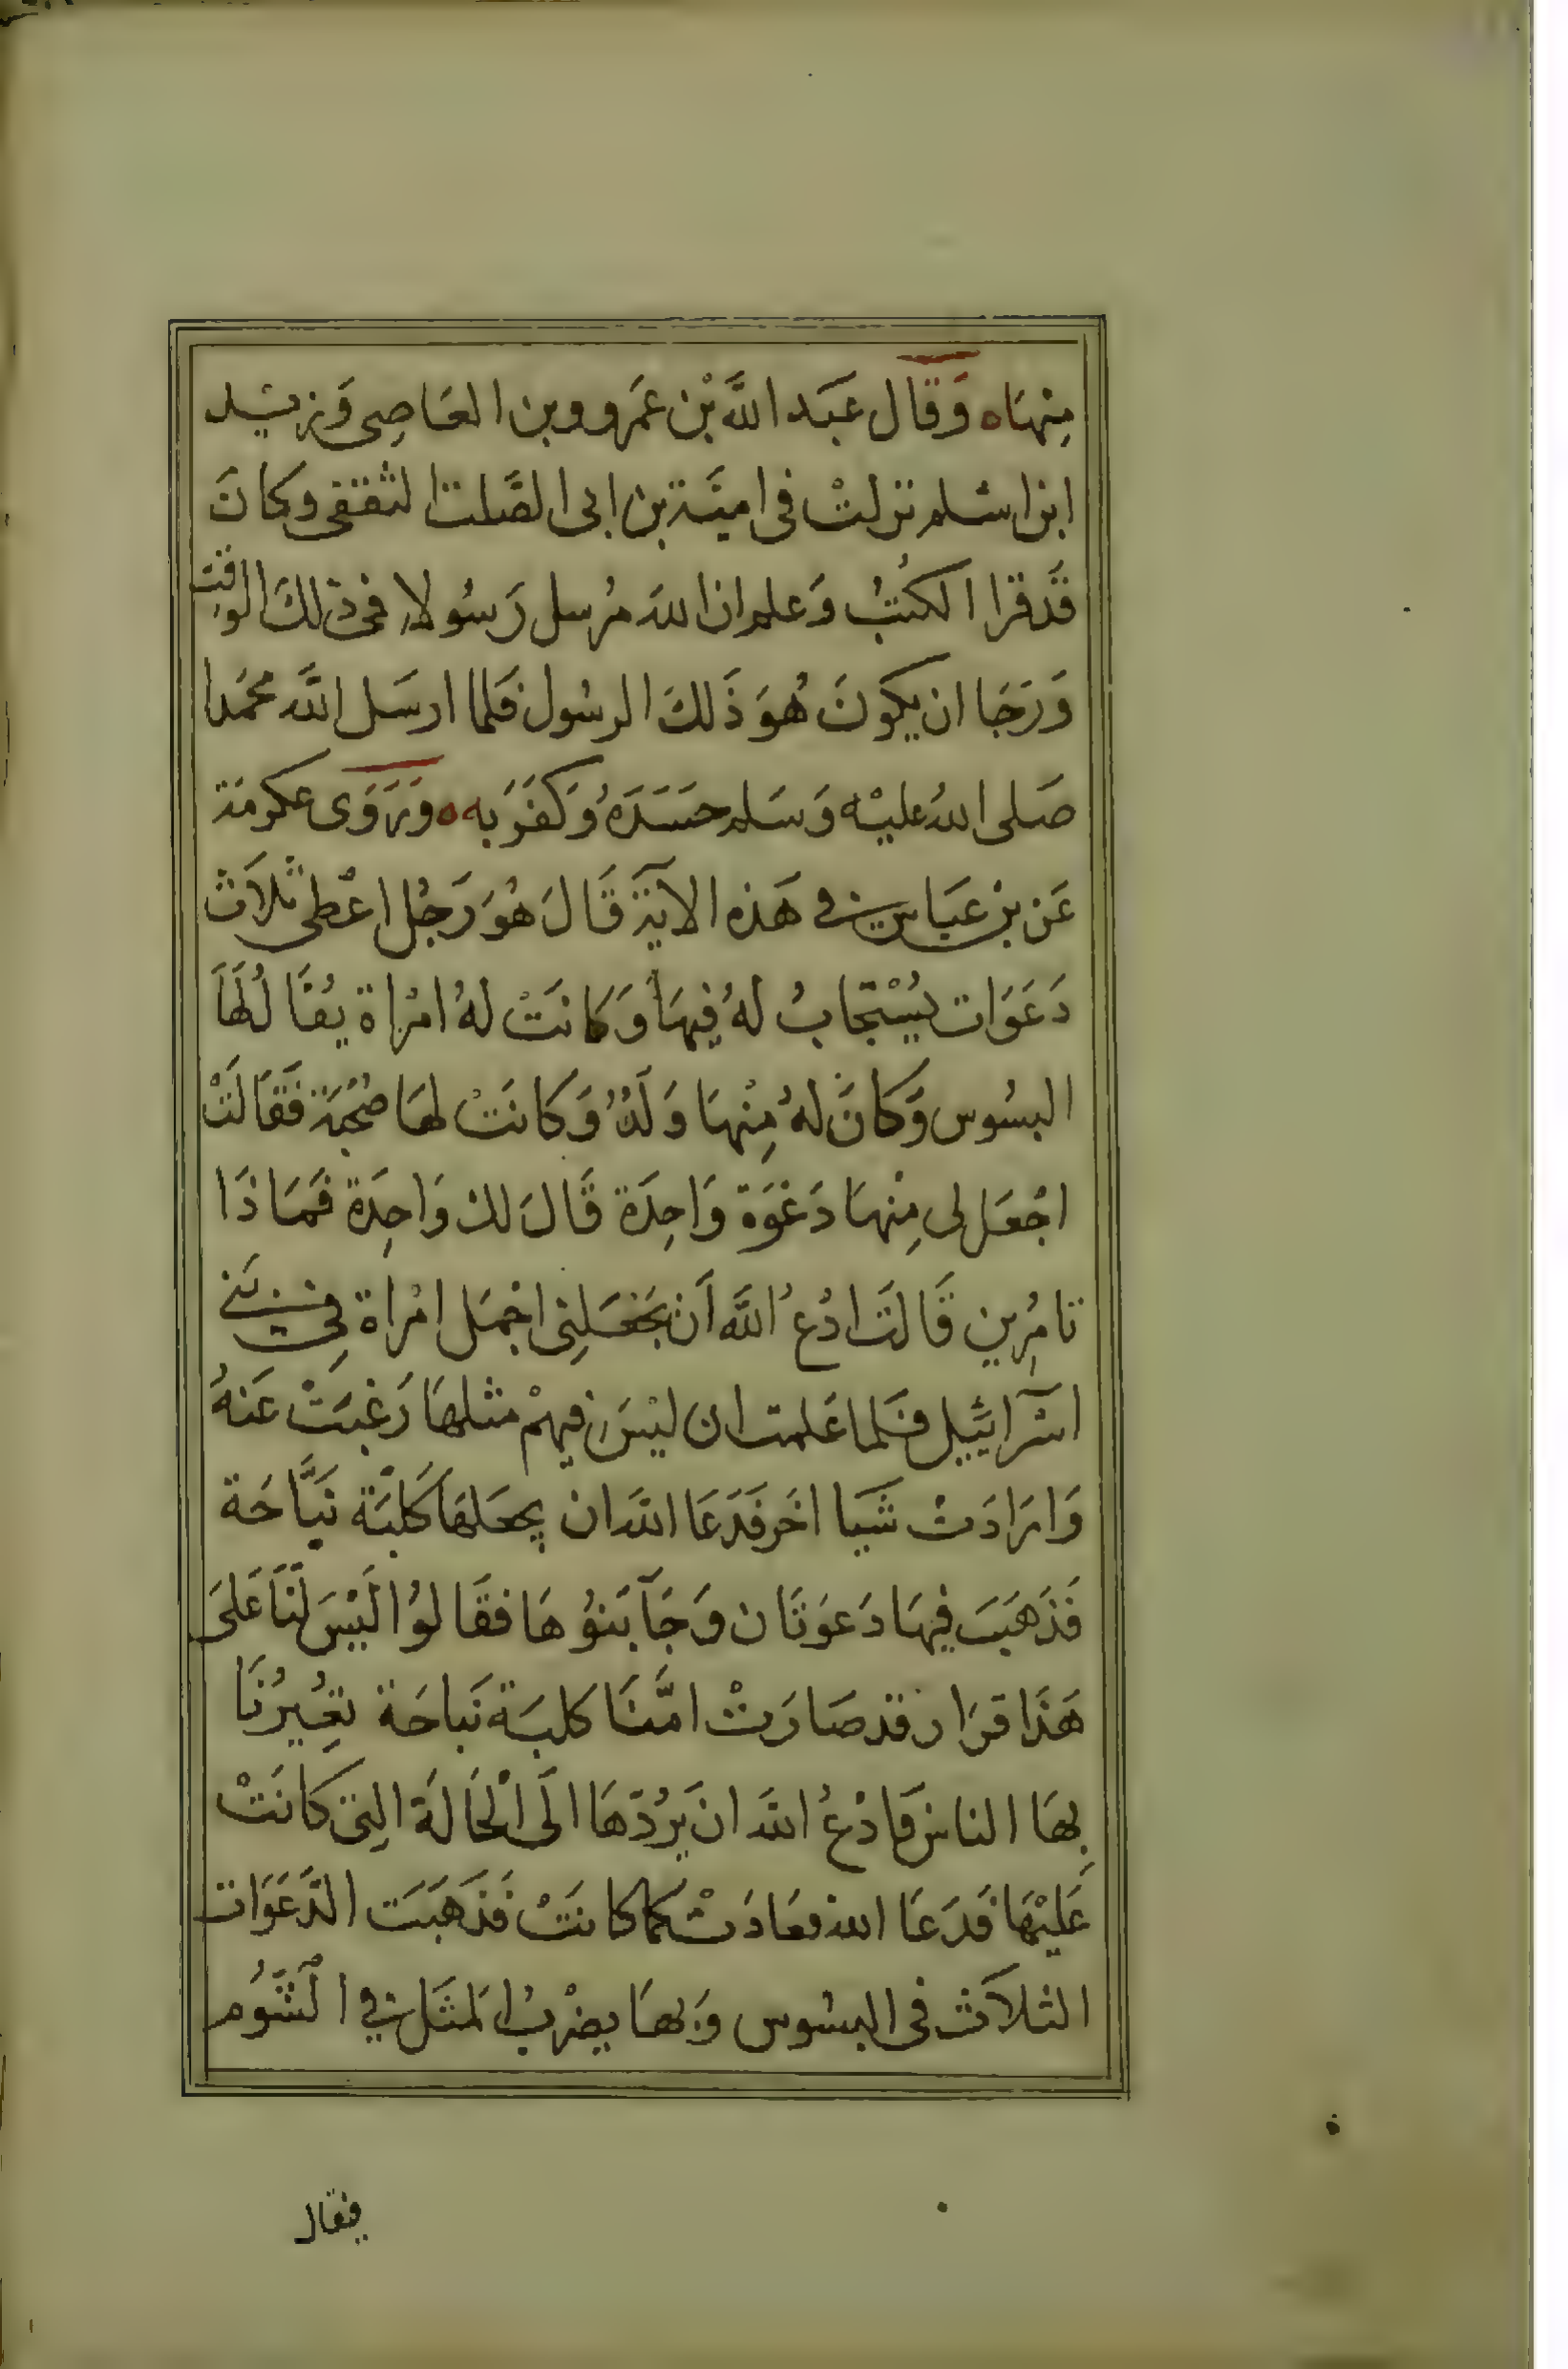 مِنْهَا ه وَقَال عَبَد اللَّه بْن عَمَرو وبن العَاصِى وَزيَد
ابن اسلم نزلتْ فى اميَّة بن ابى الصَّلت الثقفى وكانَ
قَد قرا الكتُبُ وَعلم ان اللهَ مُرسل رَسُولا فى ذلكَ الوقت
وَرَجَا ان يكونَ هُوَ ذَلكَ الرسُول فلما ارسَل اللَّه محَمدا
صَلى اللهُ عليْه وَسَلم حسَدَهُ وَكفَرَ به ه وَرَوَى عكرمَة
عَن بنْ عَبَاس فى هَذه الآية قَالَ هُوَ رَجُل اعْطى ثلاَث
دَعَوَات يُسْتجَابُ لهُ فِيهَا وَكَانَتْ لهُ امْراة يُقَالُ لَهَا
البسُوس وَكانَ لهُ مِنْهَا وَلَدُ وَكانَتْ لهَا صُحْبَة فَقَالَتْ
اجْعَل لى مِنْهَا دَعْوَة وَاحِدَة قَالَ لك وَاحِدَة فَمَا ذَا
تامُرِين قَالَتَ ادْعُ اللَّه اَن يَجْعَلنِى اجْمَل امْراة فِى بَنى
اسَرآئيل فلما عَلمت ان ليْسَ فِيهمْ مثلهَا رَغبَتْ عَنهُ
وَارَادَتْ شَيَا اخَر فَدَعَا اللهَ ان يجعَلهَا كَلبَة نَبَّاحَة
فَذَهَبَت فِيهَا دَعوَتَان وَجَآ بَنوُهَا فقَالوُا لَيْسَ لَنَا عَلىَ
هَذَا قرَار قد صَارَتْ امَّنَا كلبَة نَباحَة يُعِيرُنَا
بِهَا الناسُ فَادْعُ اللهَ ان يَرُدّهَا الَى الْحَالَة التِى كَانَتْ
عَليْهَا فَدَعَا الله فعَادَتْ كما كانَتْ فَذَهَبَت الدَّعَوَات
الثلاَث فى البسُوس وَبهَا يضْربُ المَثَل فِى الشُّوُم
فقال